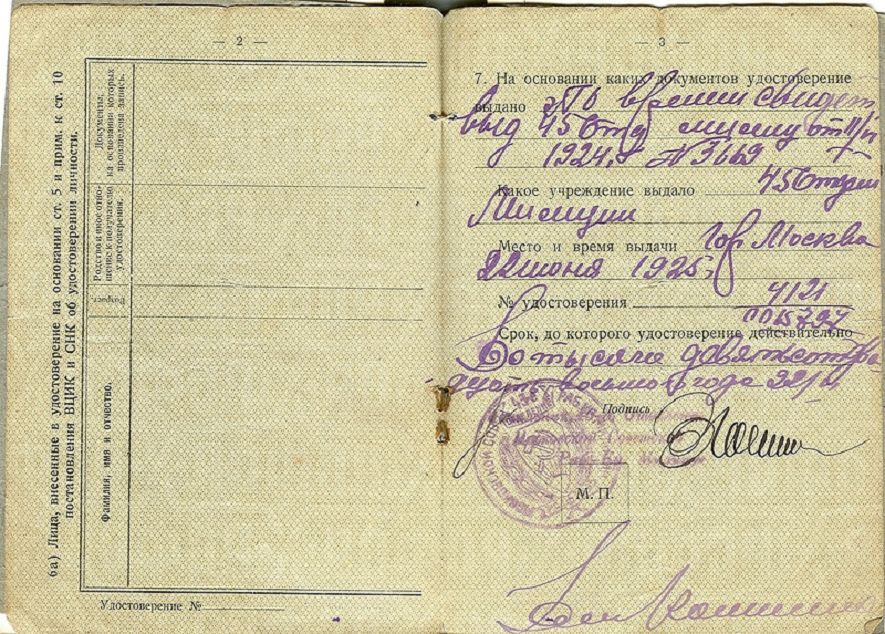 — 2 —
6а) Лица, внесенные в удостоверение на основании ст. 5 и прим. к ст. 10
постановления ВЦИК и СНК об удостоверении личности.
Документы,
на основании которых
произведена запись.
Родство и иное отно-
шение к получателю
удостоверения.
Возраст.
Фамилия, имя и отчество.
Удостоверение №
— 3 —
7. На основании каких документов удостоверение
выдано по времен свидет
выд 45 Отд милиц от 11/
1924 г №3669
Какое учреждение выдало 45 Отдел
Милиции
Место и время выдачи Гор Москва
22 июня 1925 г
№ удостоверения 4121
Срок, до которого удостоверение действительно
до тысяча девятьсот
восьмого года 22/
Подпись
М. П.